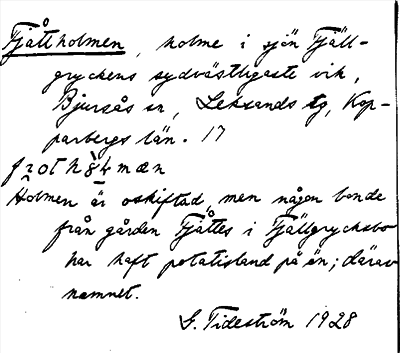 Fjåttholmen, holme i sjön Fjäll-
gryckens sydvästligaste vik,
Bjursås sn, Leksands tg, Kop-
parbergs län. 17
Holmen är oskiftad, men någon bonde
från gården Fjåttes i Fjällgrycksbo
har haft potatisland på ön; därav
namnet.
G. Tideström 1928